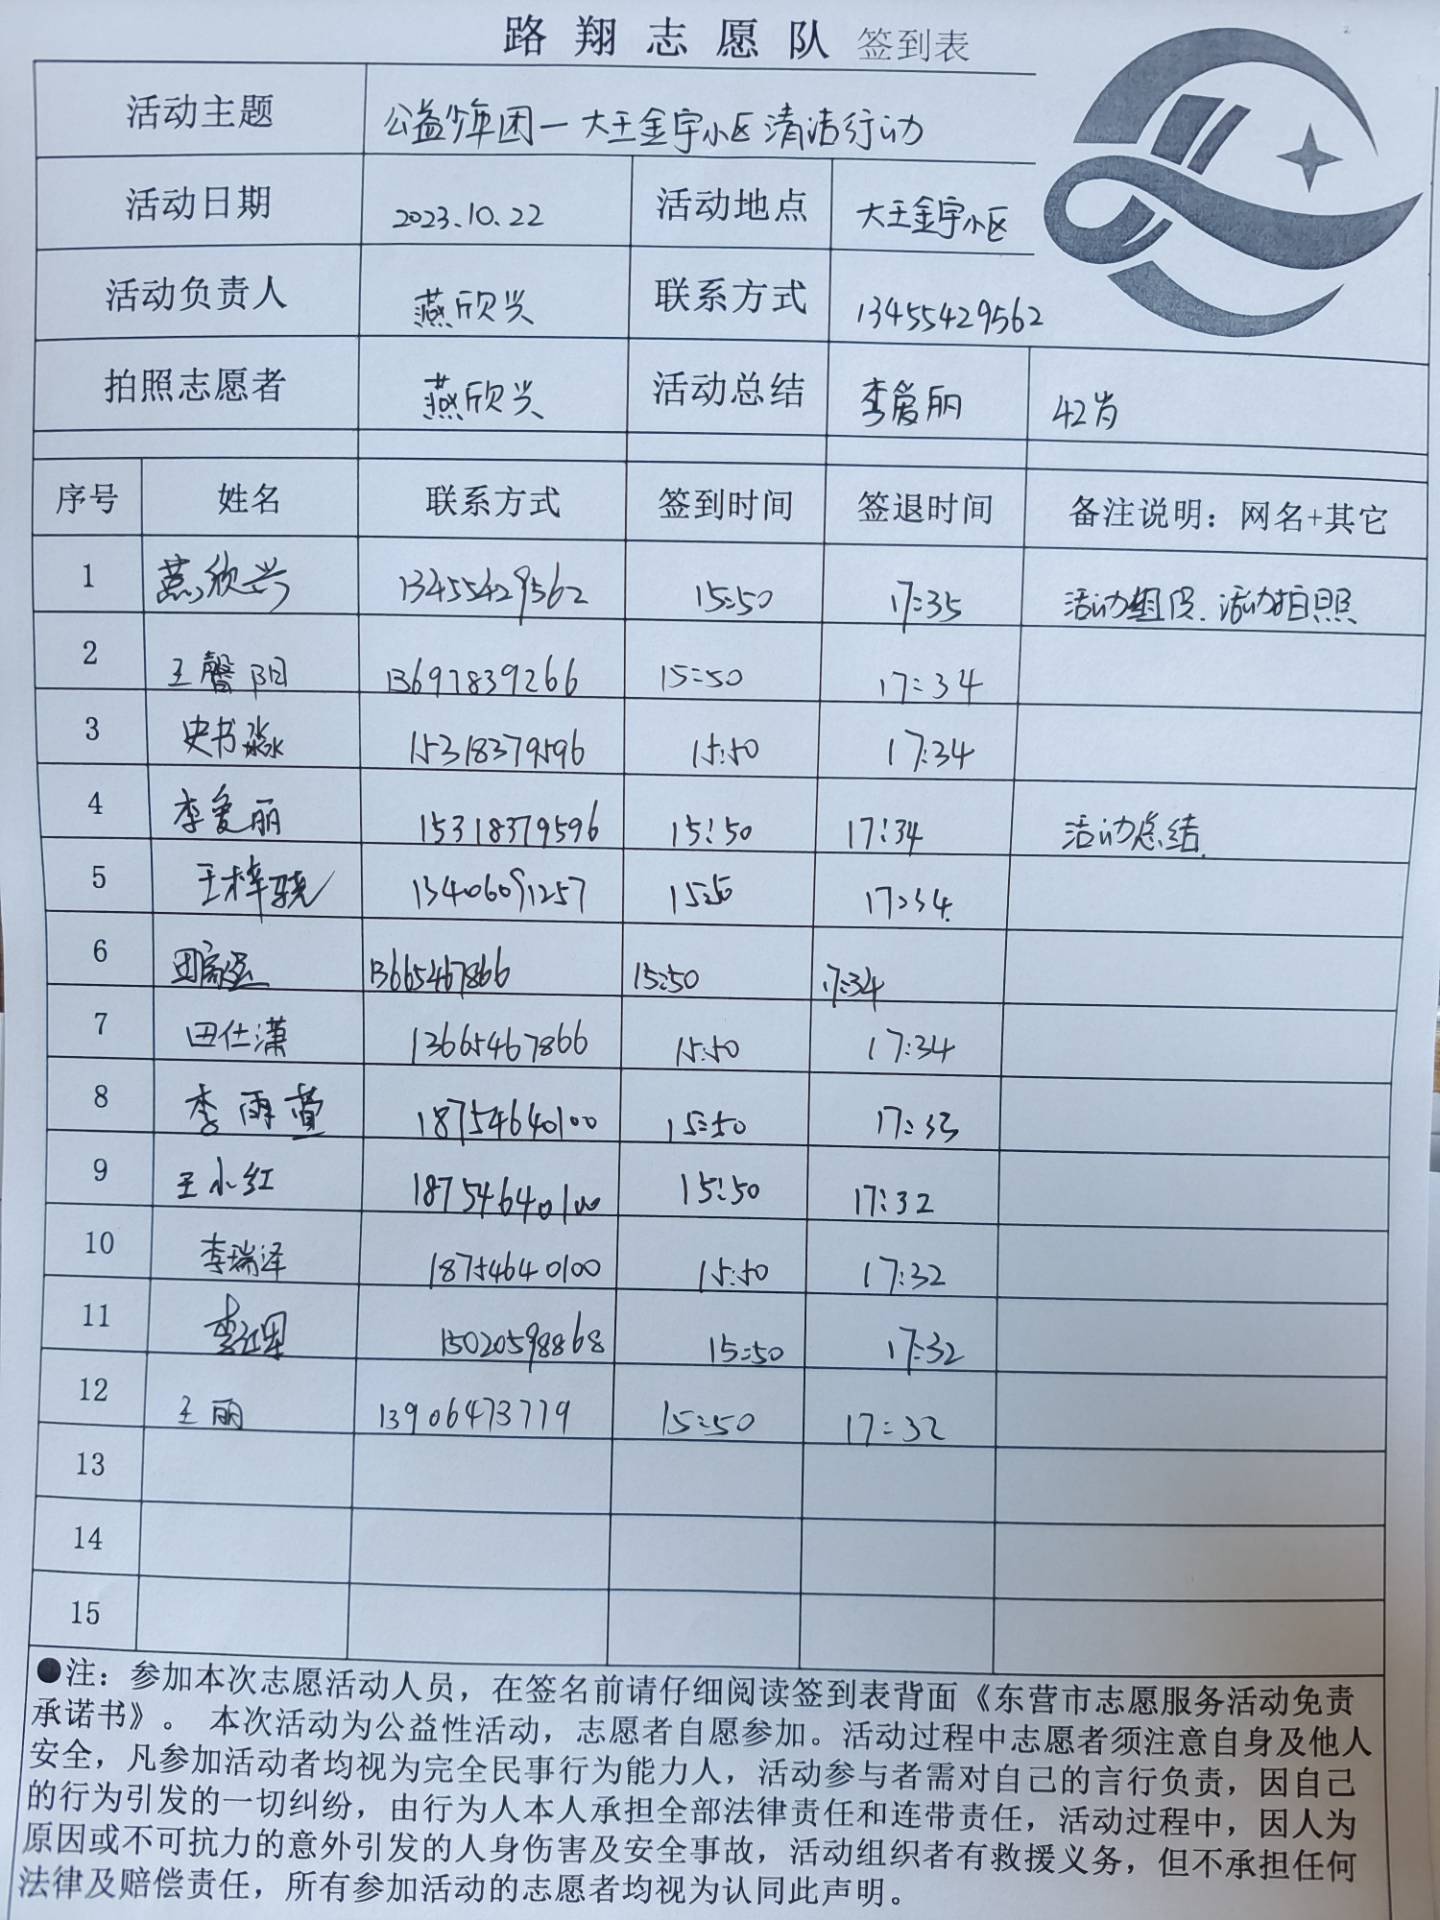 路翔志愿队 签到表
活动主题 公益少年团一大王金宇小区清洁行动
活动日期 2023.10.22 活动地点 大王金宇小区
活动负责人 燕欣兴 联系方式 13455429562
拍照志愿者 燕欣兴 活动总结 李爱丽 42岁
序号 姓名 联系方式 签到时间 签退时间 备注说明：网名+其它
1 燕欣兴 13455429562 15:50 17:35 活动组织、活动拍照
2 王馨阳 13697839266 15:50 17:34
3 史书淼 15318379596 15:50 17:34
4 李爱丽 15318379596 15:50 17:34 活动总结.
5 王梓骁 13406091257 15:50 17:34
6 13665467866 15:50 17:34
7 田仕潇 13665467866 15:50 17:34
8 李雨萱 18754640100 15:50 17:33
9 王小红 18754640100 15:50 17:32
10 李瑞泽 18754640100 15:50 17:32
11 15020598868 15:50 17:32
12 王丽 13906473779 15:50 17:32
13
14
15
●注：参加本次志愿活动人员，在签名前请仔细阅读签到表背面《东营市志愿服务活动免责
承诺书》。 本次活动为公益性活动，志愿者自愿参加。活动过程中志愿者须注意自身及他人
安全，凡参加活动者均视为完全民事行为能力人，活动参与者需对自己的言行负责，因自己
的行为引发的一切纠纷，由行为人本人承担全部法律责任和连带责任，活动过程中，因人为
原因或不可抗力的意外引发的人身伤害及安全事故，活动组织者有救援义务，但不承担任何
法律及赔偿责任，所有参加活动的志愿者均视为认同此声明。